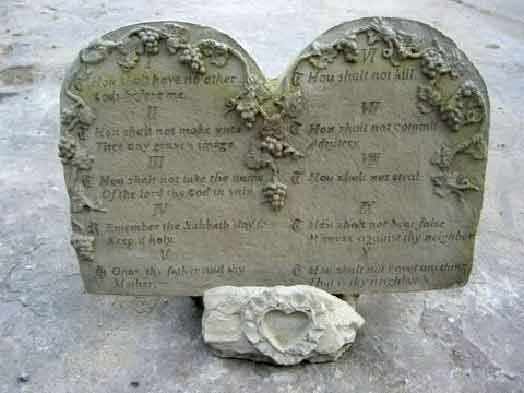 I
Thou shalt have no other
Gods before me.
II
Thou shalt not make unto
Thee any graven image
III
Thou shalt not take the name
Of the lord thy God in vain
IV
Remember the Sabbath day to
Keep it holy.
V
thy father and thy
Mother.
VI
Thou shalt not kill.
VII
Thou shalt not commit
Adultery.
VIII
Thou shalt not steal.
IX
Thou shalt not bear false
Witness against thy neighbor
X
Thou shalt not covet anything
That is thy neighbor's